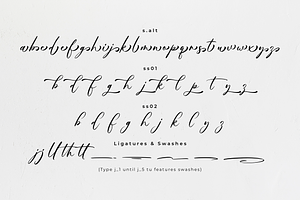 s.alt
abcdefghijklmnopqrstuvwxyz
ss01
b d f g h j k l p t y z
ss02
b d f g h j k l y z
Ligatures & Swashes
jj ll tt th tt
(Type j_1 until j_5 tu features swashes)